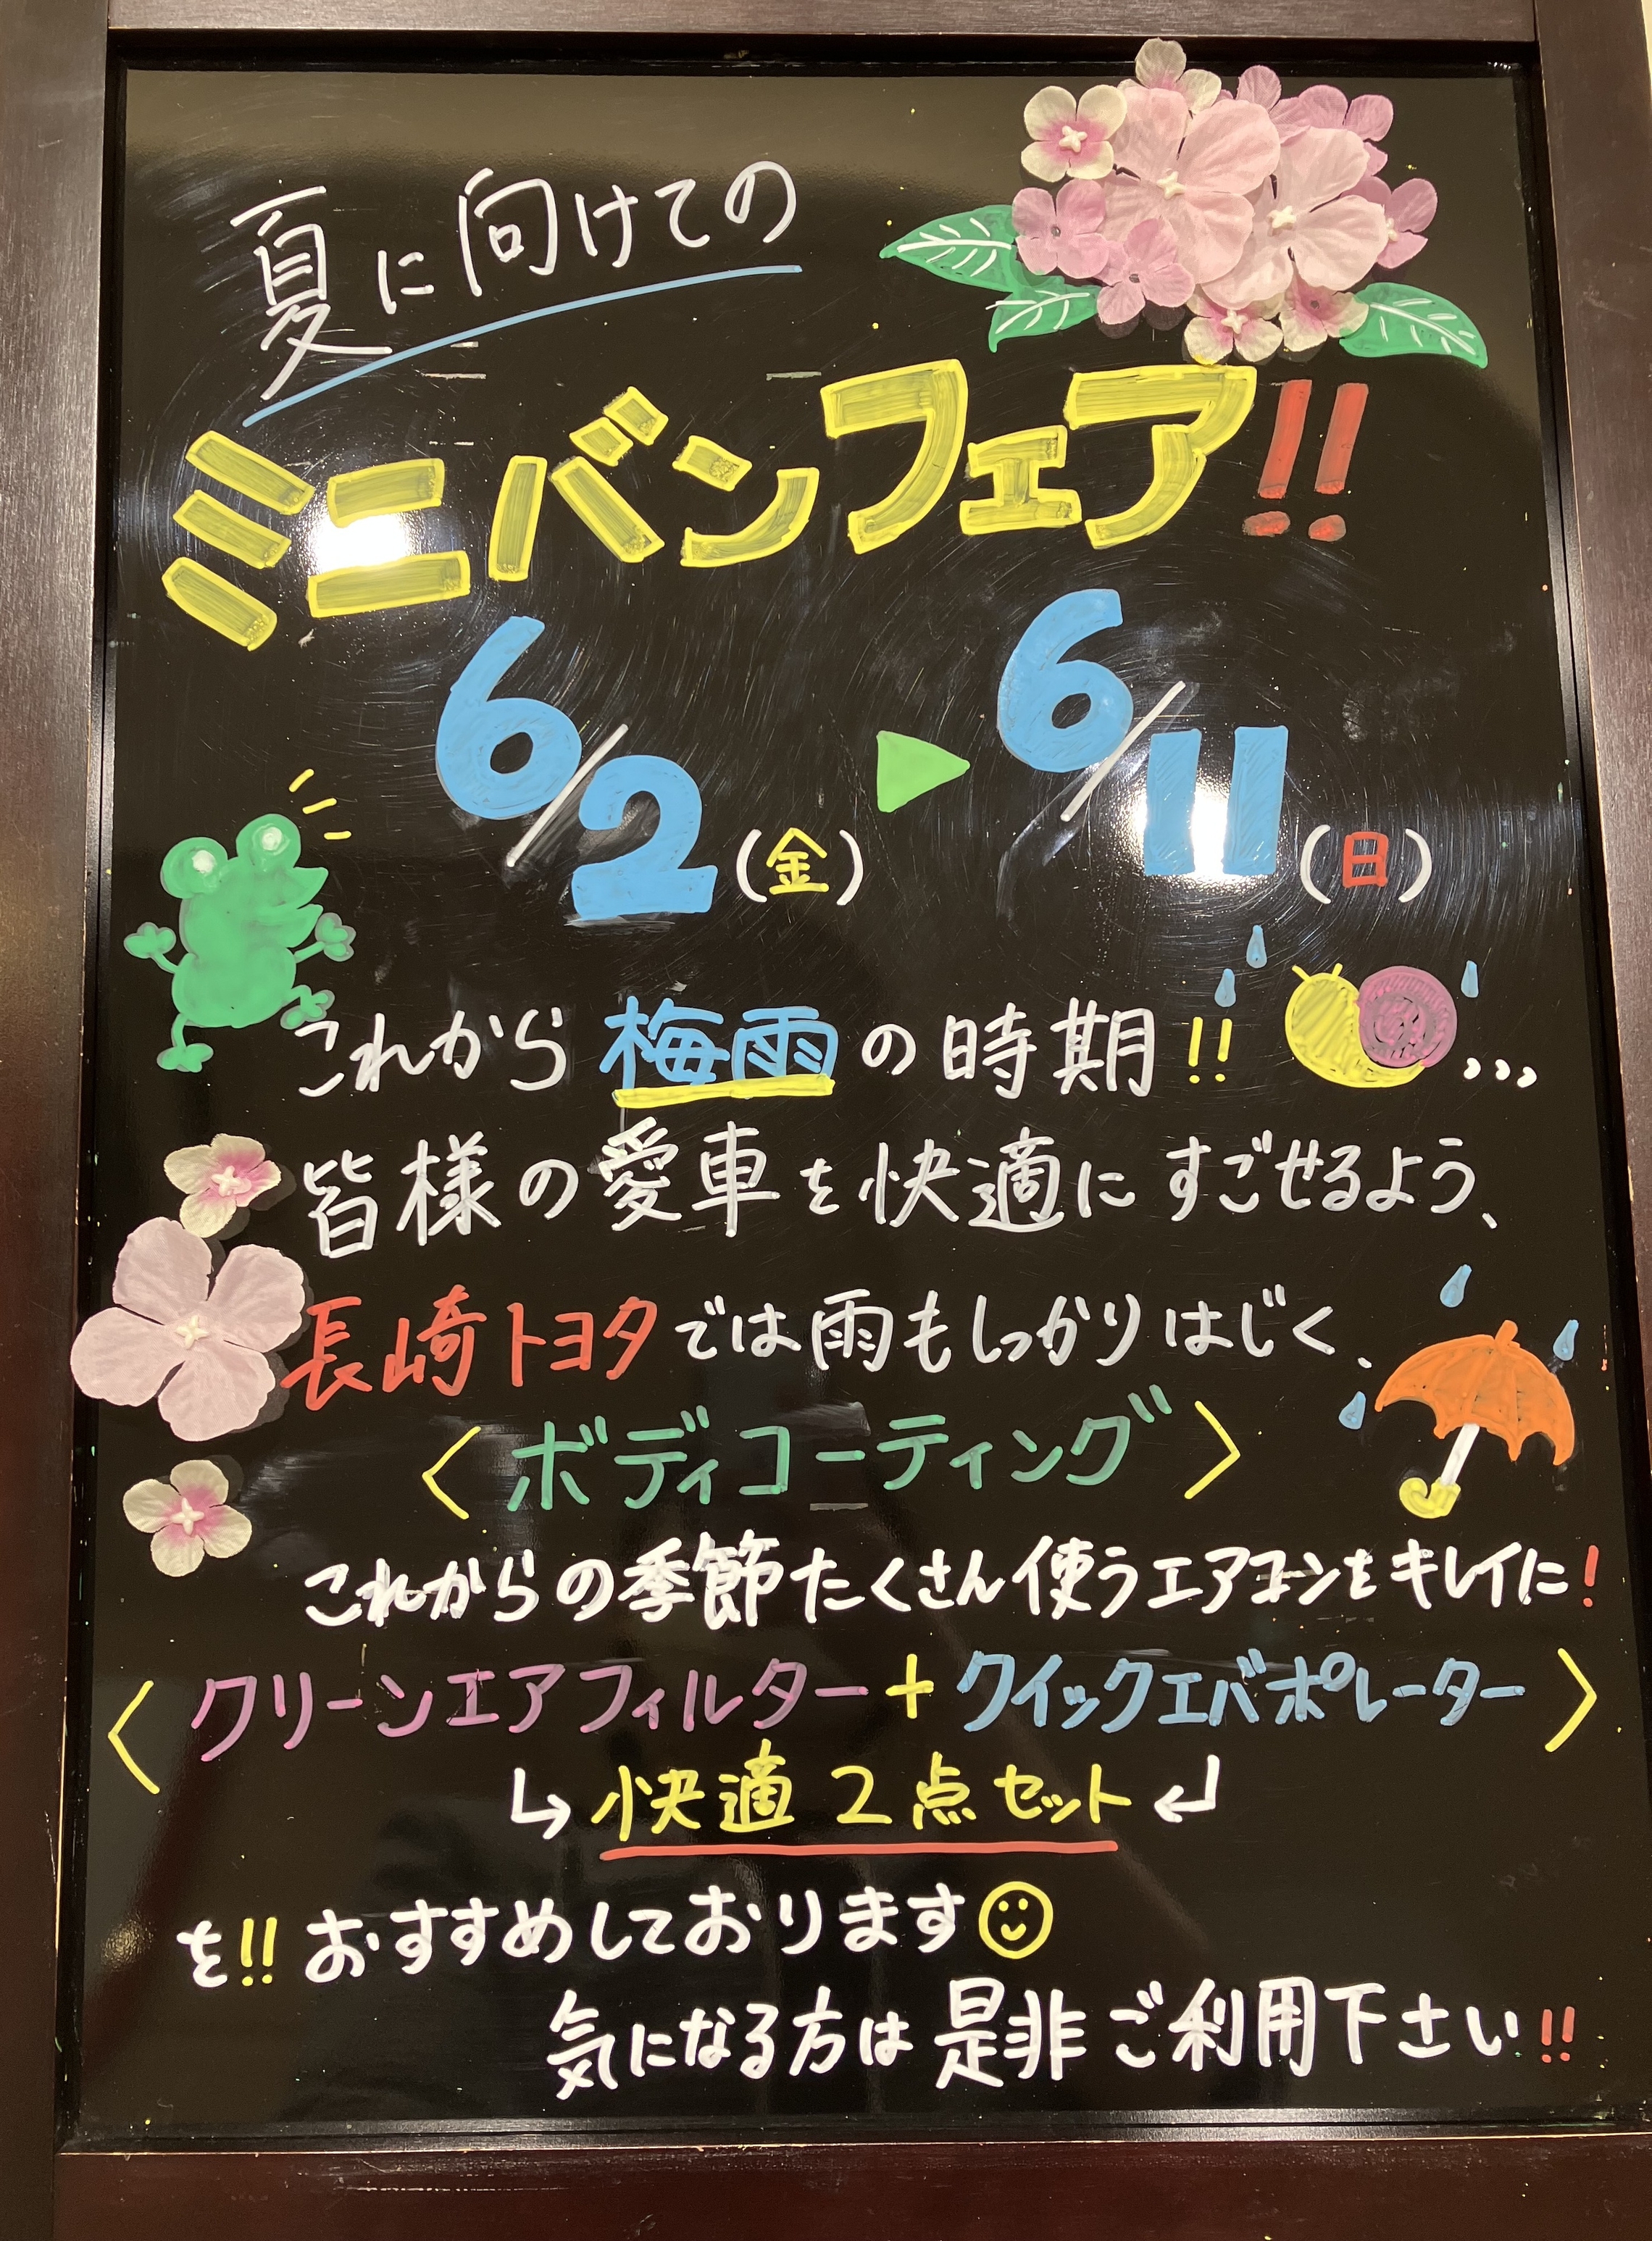 夏に向けての
ミニバンフェア!!
6/2(金)▶6/11(日)
これから梅雨の時期!!
皆様の愛車を快適にすごせるよう、
長崎トヨタでは雨もしっかりはじく、
〈ボディコーティング〉
これからの季節たくさん使うエアコンをキレイに!
〈クリーンエアフィルター+クイックエバポレーター〉
↳快適2点セット↲
を!!おすすめしております☺
気になる方は是非ご利用下さい!!